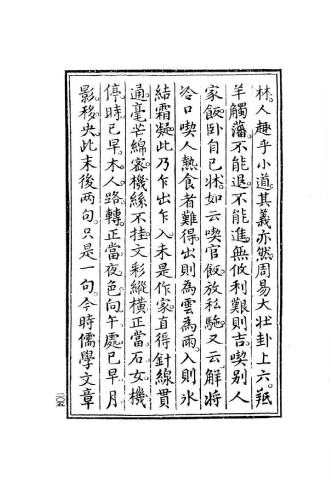 林。人趣乎小道。其義亦然。周易大壯卦上六。羝
羊觸藩。不能退。不能進。無攸利。艱則吉。喫別人
家飯。臥自己牀。如云喫官飯。放私駞。又云解將
冷口喫人熱食者難得。出則為雲為雨。入則氷
結霜凝。此乃乍出乍入。未是作家。直得針線貫
通。毫芒綿密。機絲不挂。文彩縱橫。正當石女機
停時已早。木人路轉。正當夜色向午處。已早月
影移央。此末後兩句。只是一句。今時儒學文章
二〇五